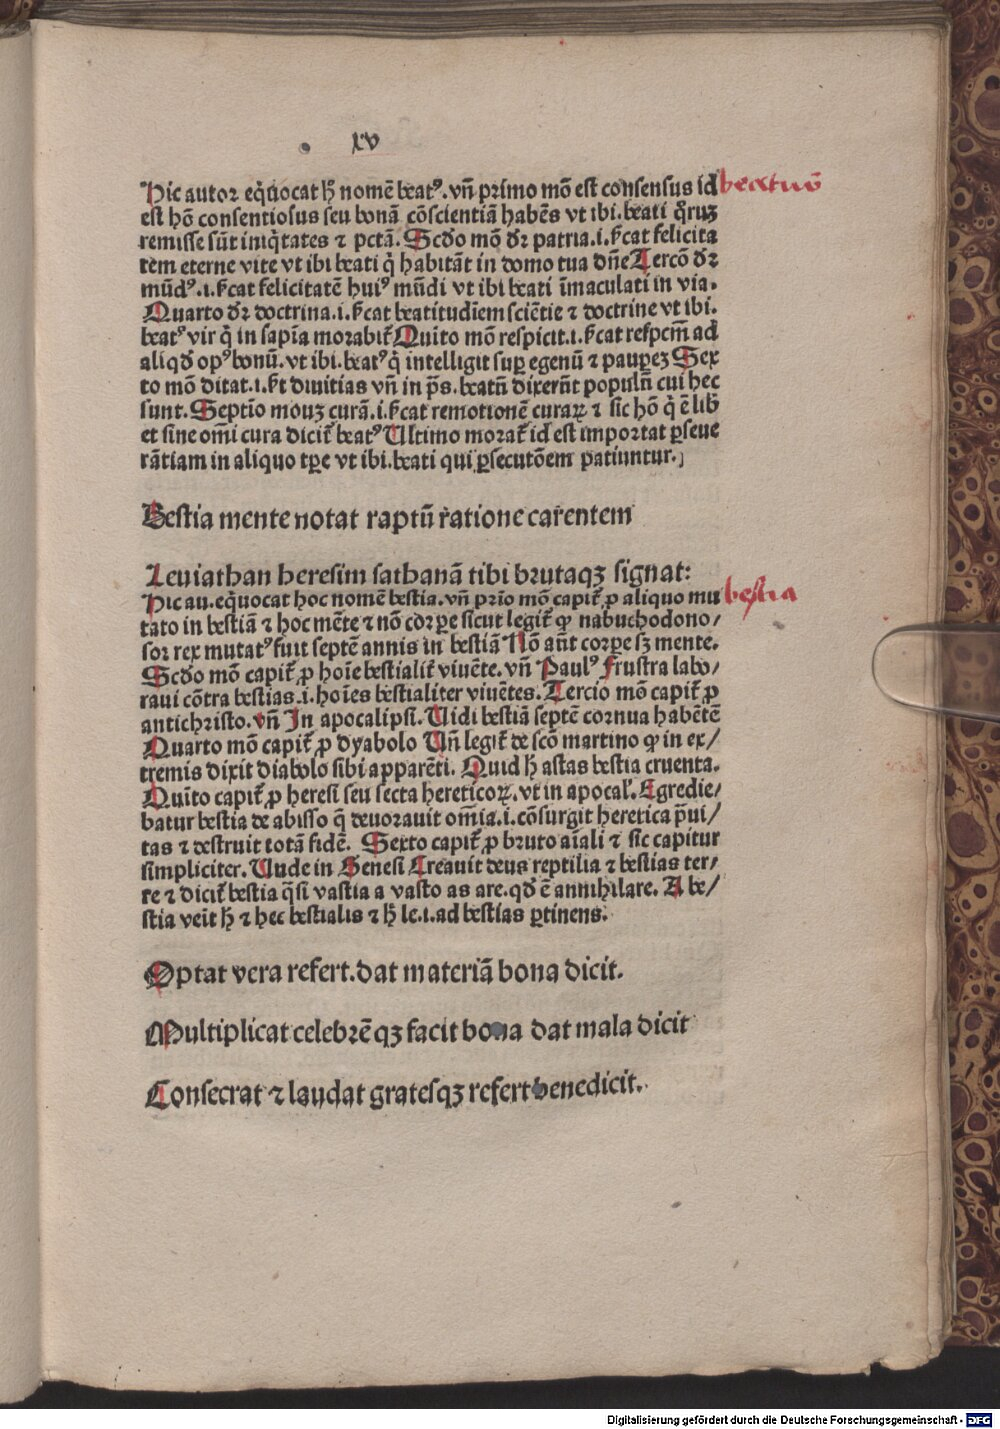 xv
Hic autor eq̇uocat hꝫ nomē beatꝰ. vn̄ primo mō est consensus id
beatus
est hō consentiosus seu bonā cōscientiā habēs vt ibi. beati q̄ruꝫ
remisse sūt iniq̇tates ⁊ pctā. Scd̄o mō dr̄ patria .i. s̄cat felicita
tem eterne vite vt ibi beati q̇ habitāt in domo tua dn̄e Tercō dr̄
mūdꝰ .i. s̄cat felicitatē huiꝰ mūdi vt ibi beati īmaculati in via.
Quarto dr̄ doctrina .i. s̄cat beatitudīem sciētie ⁊ doctrine vt ibi.
beatꝰ vir q̇ in sapīa morabit᷑ Quīto mō respicit .i. s̄cat respcm̄ ad
aliqd̄ opꝰ bonū. vt ibi. beatꝰ q̇ intelligit suꝑ egenū ⁊ paupeꝫ Sex
to mō ditat .i. s̄t diuitias vn̄ in p̄s. beatū dixerūt populū cui hec
sunt. Septīo mouꝫ curā .i. s̄cat remotionē curaꝝ ⁊ sic hō q̇ ē lib̄
et sine om̄i cura dicit᷑ beatꝰ Ultimo morat᷑ id est importat ꝑseue
rātiam in aliquo tꝑe vt ibi. beati qui ꝑsecutōem patiuntur.
Bestia mente notat raptū ratione carentem
Leuiathan heresim sathanā tibi brutaqꝫ signat:
Hic au. eq̇uocat hoc nomē bestia. vn̄ prīo mō capit᷑ ꝓ aliquo mu
bestia
tato in bestiā ⁊ hoc mēte ⁊ nō corꝑe sicut legit᷑ ꝙ nabuchodono/
sor rex mutatꝰ fuit septē annis in bestiā Nō aūt corꝑe sꝫ mente.
Scd̄o mō capit᷑ ꝓ hoīe bestialit᷑ viuēte. vn̄ Paulꝰ Frustra labo/
raui cōtra bestias .i. hoīes bestialiter viuētes. Tercio mō capit᷑ ꝓ
antichristo. vn̄ In apocalipsi. Uidi bestiā septē cornua habētē
Quarto mō capit᷑ ꝓ dyabolo Un̄ legit᷑ de scō martino ꝙ in ex/
tremis dixit diabolo sibi apparēti. Quid hꝫ astas bestia cruenta.
Quīto capit᷑ ꝓ heresi seu secta hereticoꝝ. vt in apocal᷑. Egredie/
batur bestia de abisso q̄ deuorauit om̄ia .i. cōsurgit heretica p̄ui/
tas ⁊ destruit totā fidē. Sexto capit᷑ ꝓ bruto aīali ⁊ sic capitur
simpliciter. Unde in Genesi Creauit deus reptilia ⁊ bestias ter/
re ⁊ dicit᷑ bestia q̄si vastia a vasto as are. qd̄ ē annihilare. A be/
stia veīt hꝫ ⁊ hec bestialis ⁊ hꝫ le .i. ad bestias ꝑtinens.
Optat vera refert. dat materiā bona dicit.
Multiplicat celebrē qꝫ facit bona dat mala dicit
Consecrat ⁊ laudat gratesqꝫ refert benedicit.
Digitalisierung gefördert durch die Deutsche Forschungsgemeinschaft - DFG